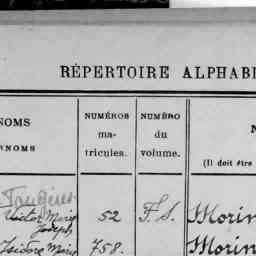 RÉPERTOIRE ALPHABE
NOMS
RÉNOMS
NUMÉROS
ma-
tricules.
NUMÉRO
du
volume.
N
(Il doit être
Victor Marie
Joseph
52
F.S.
Morin
Isidore Marie
758.
Morin